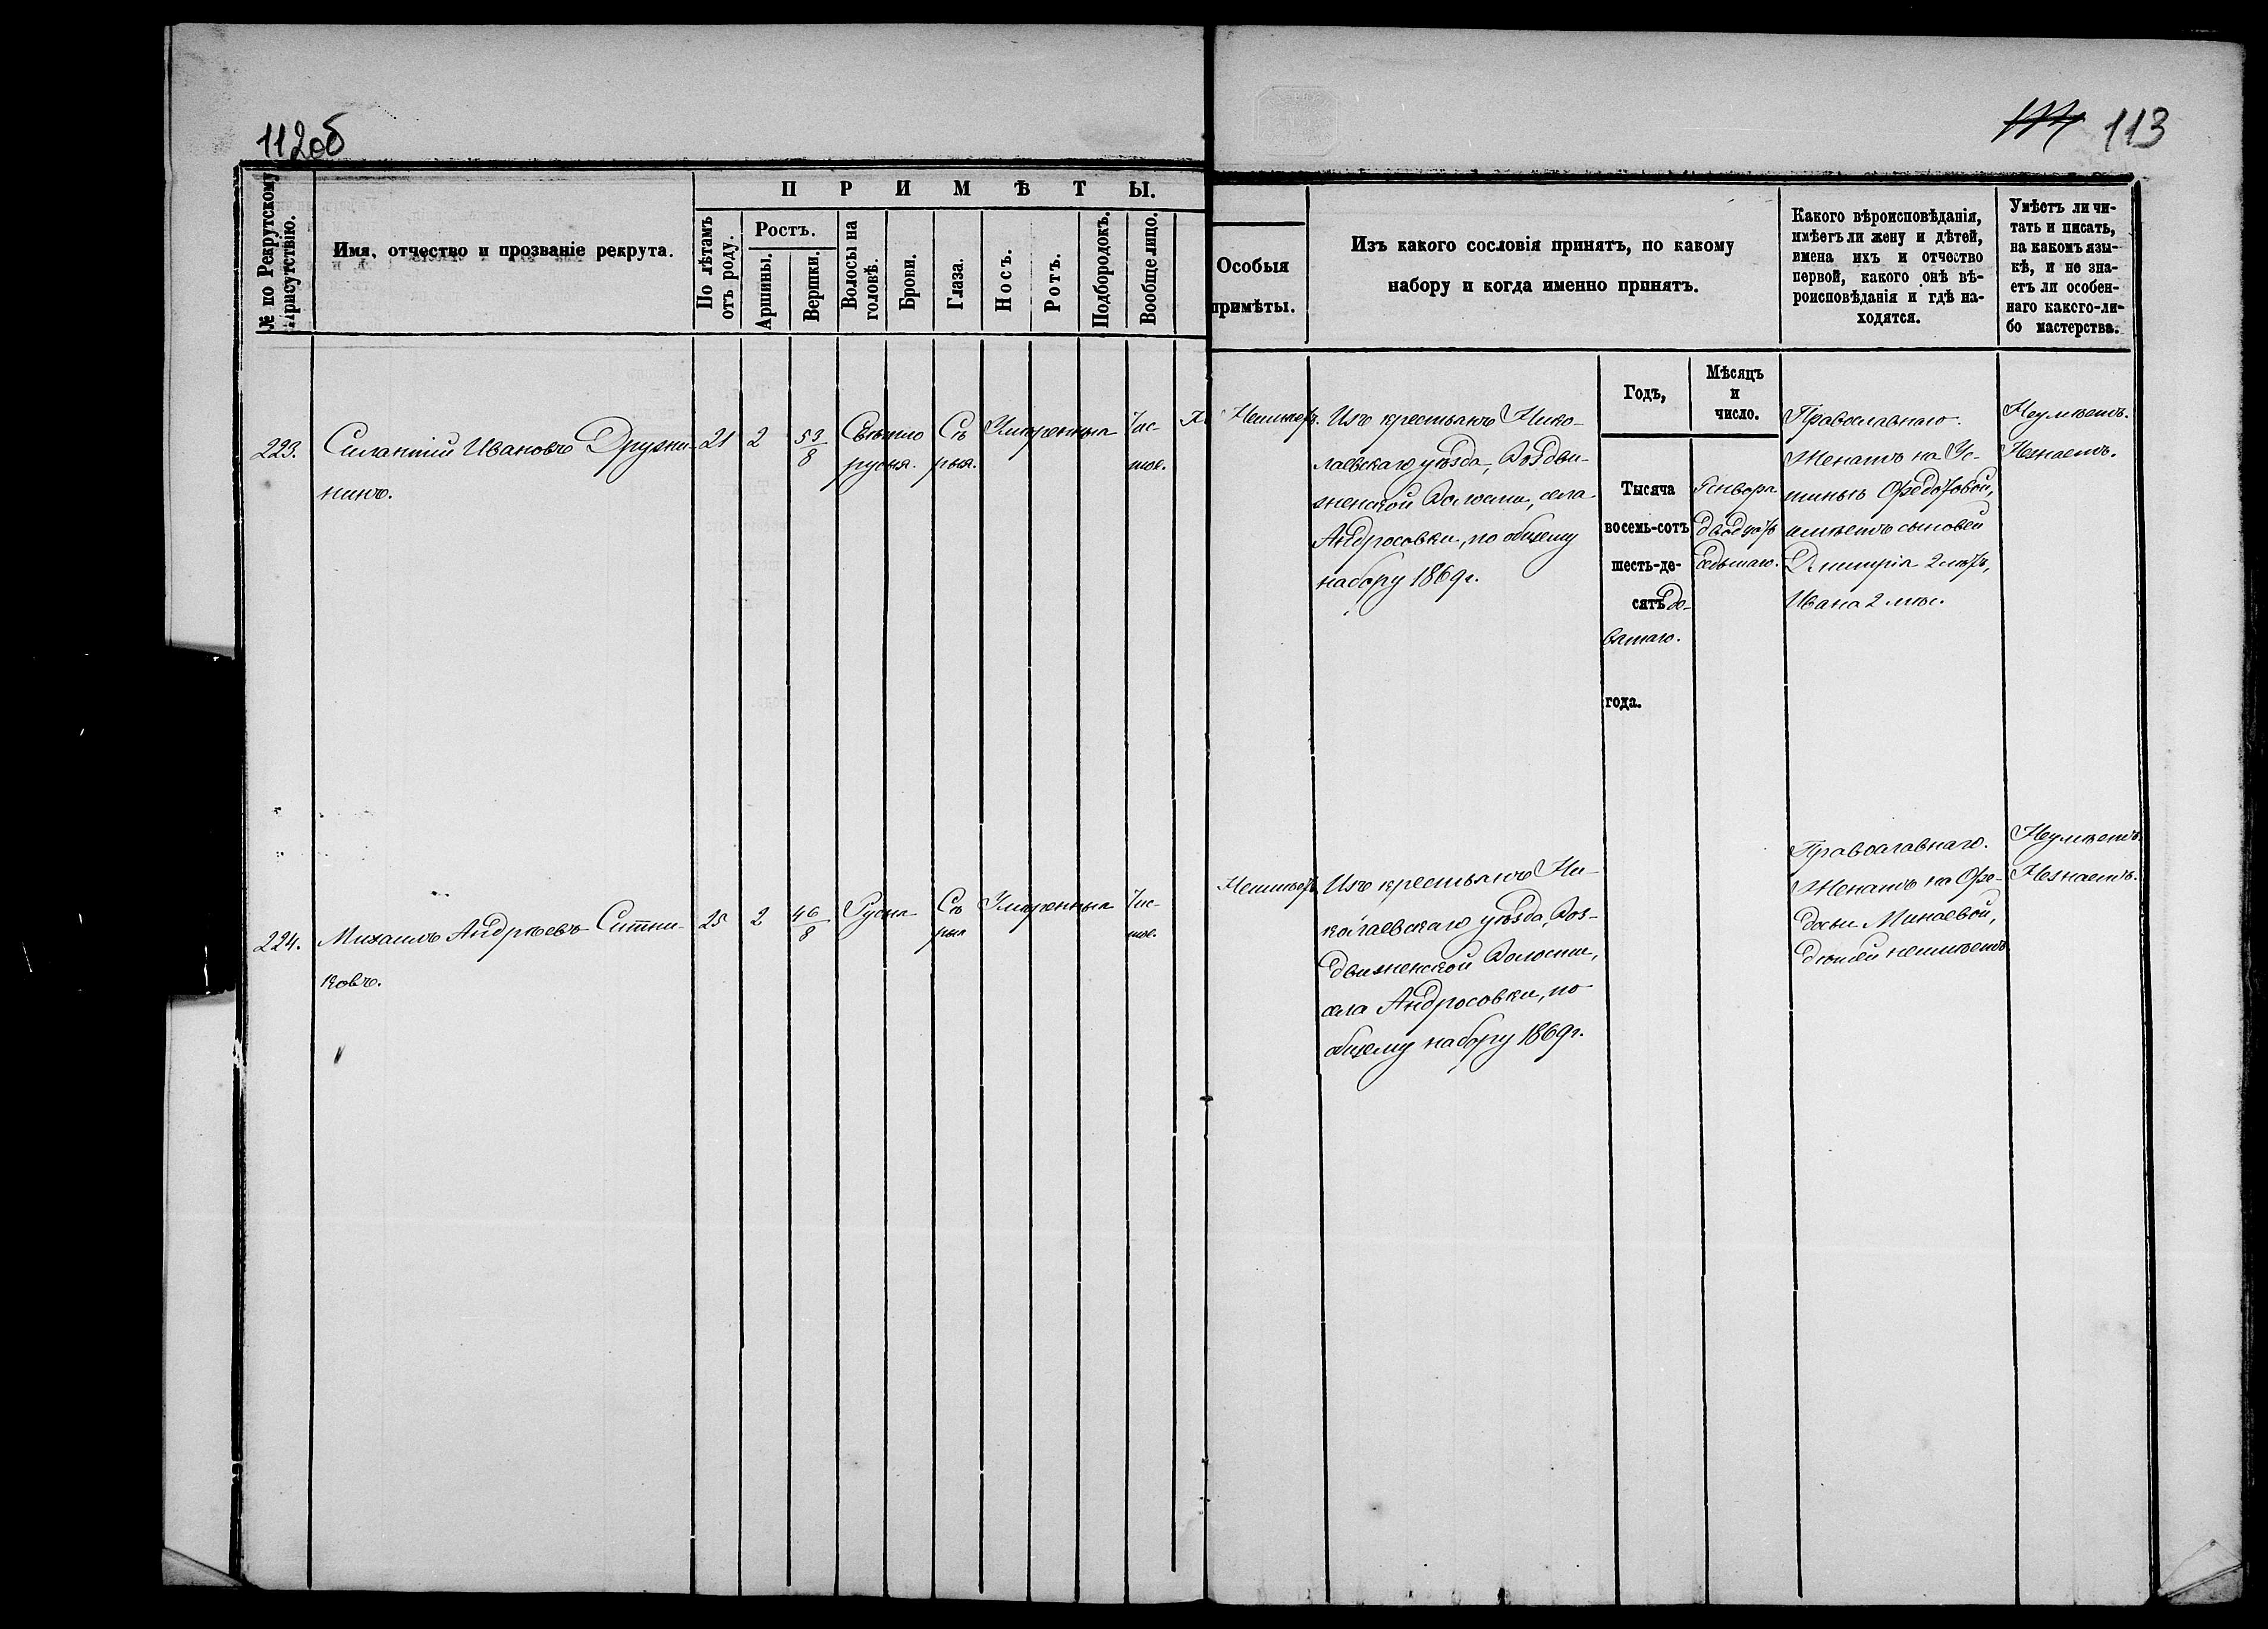 112об
113
№ по Рекрутскому
присутствію.
Имя, отчество и прозваніе рекрута.
ПРИМѢТЫ.
По лѣтамъ
отъ роду.
Ростъ.
Аршины.
Вершки.
Волосы на
головѣ.
Брови.
Глаза.
Носъ.
Ротъ.
Подбородокъ.
Вообще лицо.
Особыя
примѣты.
Изъ какого сословія принятъ, по какому
набору и когда именно принятъ.
Какого вѣроисповѣданія,
имѣетъ ли жену и дѣтей,
имена ихъ и отчество
первой, какого онѣ вѣ-
роисповѣданія и гдѣ на-
ходятся.
Умѣетъ ли чи-
тать и писать,
на какомъ язы-
кѣ, и не зна-
етъ ли особен-
наго какого-ли-
бо мастерства.
Годъ,
Мѣсяцъ
и
число.
223.
Силантій Ивановъ Дружи-
нинъ.
21
2
5 3/8
Свѣтло
русыя.
Сѣ
рыя.
Умѣренныя
Чис
тое.
Неимѣетъ.
Изъ крестьянъ Нико-
лаевскаго уѣзда, Воздви-
женской Волости, села
Андросовки, по общему
набору 1869 г.
Тысяча
восемь-сотъ
шесть-де-
сятъ де-
вятаго.
года.
Генворя
двадцать
седьмаго.
Православнаго.
Женатъ на Ус-
тиньѣ Ѳедотовой,
имѣетъ сыновей
Дмитрія 2 лѣтъ,
Ивана 2 мѣс.
Неумѣетъ.
Незнаетъ.
224.
Михаилъ Андреевъ Ситни-
ковъ.
25
2
4 6/8
Русыя
Сѣ
рыя
Умѣренныя
Чис-
тое.
Неимѣетъ
Изъ крестьянъ Ни-
колаевскаго уѣзда, Воз-
движенской Волости,
села Андросовки, по
общему набору 1869 г.
Православнаго.
Женатъ на Ѳе-
досьи Минаевой,
дѣтей неимѣетъ
Неумѣетъ.
Незнаетъ.